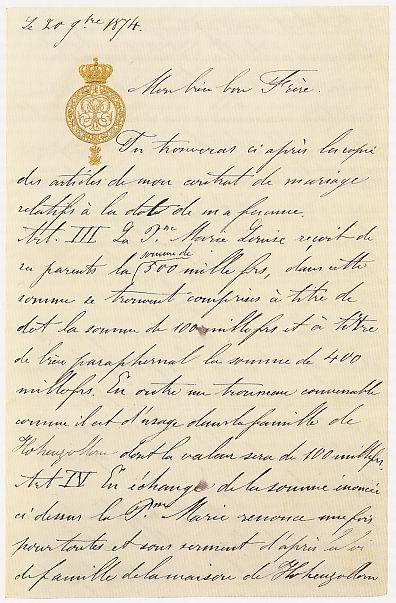 Le 20 9bre 1874.
Mon bien bon Frère.
Tu trouveras ci après la copie
des articles de mon contrat de mariage
relatifs à la dot de ma femme.
Art. III La Pme Marie Louise reçoit de
ses parents la somme de 500 mille frs, dans cette
somme se trouvent comprises à titre de
dot la somme de 100 mille frs et à titre
de bien paraphernal la somme de 400
mille frs. En outre un trousseau convenable
comme il est d'usage dans la famille de
Hohenzollern dont la valeur sera de 100 mille frs
Art IV En échange de la somme énoncée
ci dessus la Pme Marie renonce une fois
pour toutes et sous serment d'après la loi
de famille de la maison de Hohenzollern